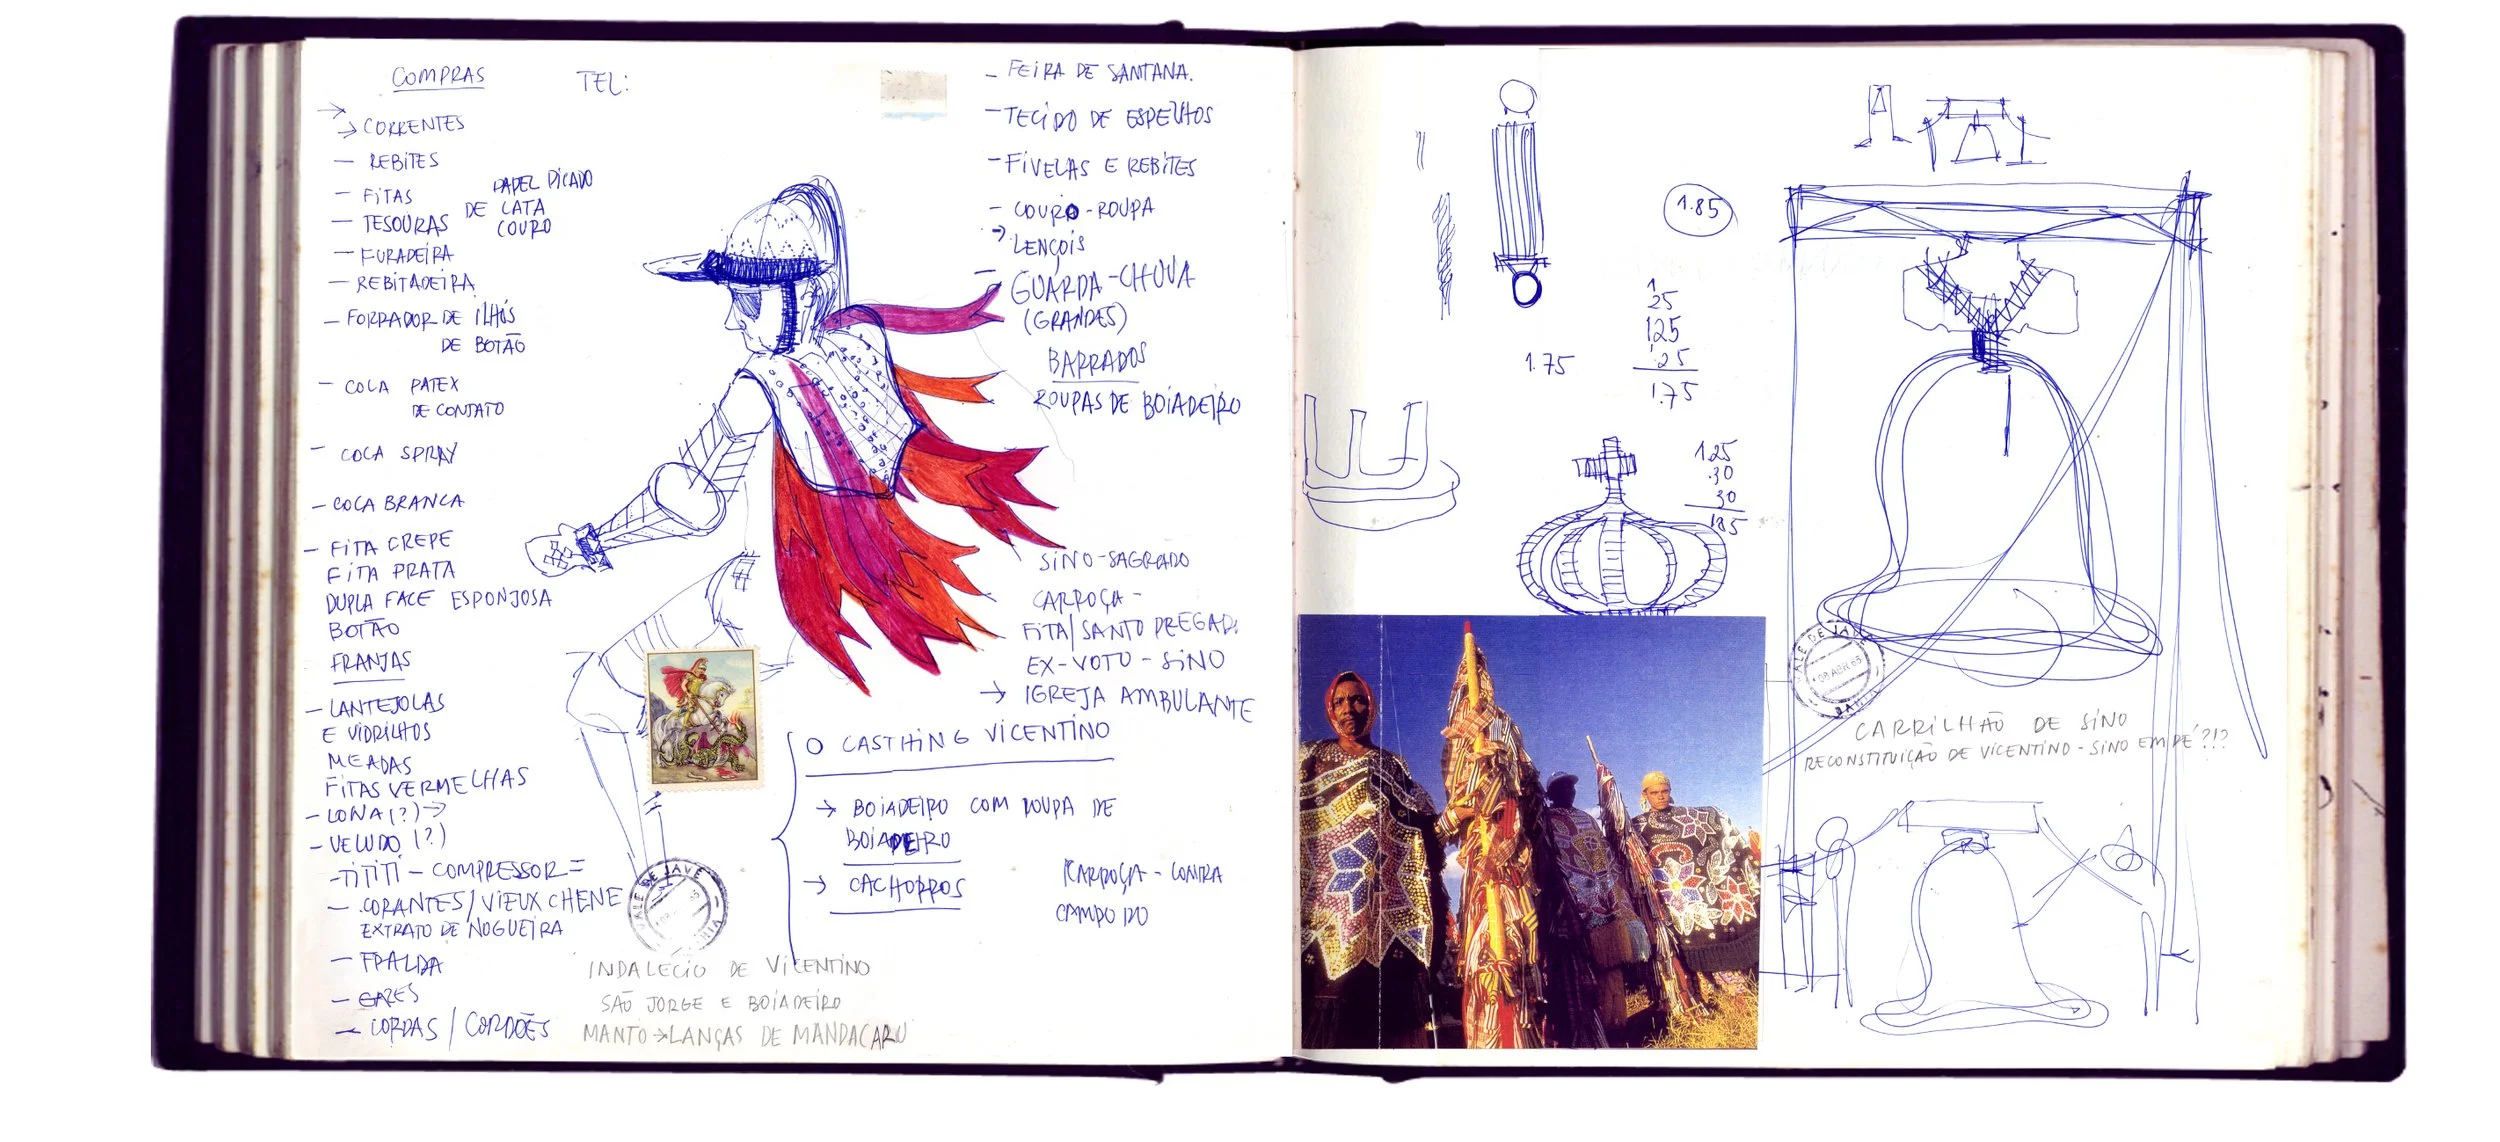 COMPRAS
TEL:
CORRENTES
REBITES
FITAS
PAPEL PICADO
TESOURAS DE LATA
COURO
FURADEIRA
REBITADEIRA
FORRADOR DE ILHÓS
DE BOTÃO
COLA PATEX
DE CONTATO
COLA SPRAY
COLA BRANCA
FITA CREPE
FITA PRATA
DUPLA FACE ESPONJOSA
BOTÃO
FRANJAS
LANTEJOLAS
E VIDRILHOS
MEADAS
FITAS VERMELHAS
LONA (?)
VELUDO (?)
TITITI - COMPRESSOR =
CORANTES / VIEUX CHENE
EXTRATO DE NOGUEIRA
FRALDA
GAZES
CORDAS / CORDÕES
- FEIRA DE SANTANA.
- TECIDO DE ESPELHOS
- FIVELAS E REBITES
- COURO - ROUPA
LENÇOIS
- GUARDA-CHUVA
(GRANDES)
BARRADOS
ROUPAS DE BOIADEIRO
SINO-SAGRADO
CARROÇA -
FITA/SANTO PREGAD.
EX-VOTO - SINO
→ IGREJA AMBULANTE
O CASTHING VICENTINO
→ BOIADEIRO COM ROUPA DE
BOIADEIRO
→ CACHORROS
CARROÇA - CONTRA
CAMPO DO
VALE DE JAVÉ
INDALECIO DE VICENTINO
SÃO JORGE E BOIADEIRO
MANTO → LANÇAS DE MANDACARU
1.85
1
25
125
25
1.75
1.75
1.25
.30
30
185
VALE DE JAVÉ
08 ABR 65
BAHIA
CARRILHÃO DE SINO
RECONSTITUIÇÃO DE VICENTINO - SINO EM PÉ?!?